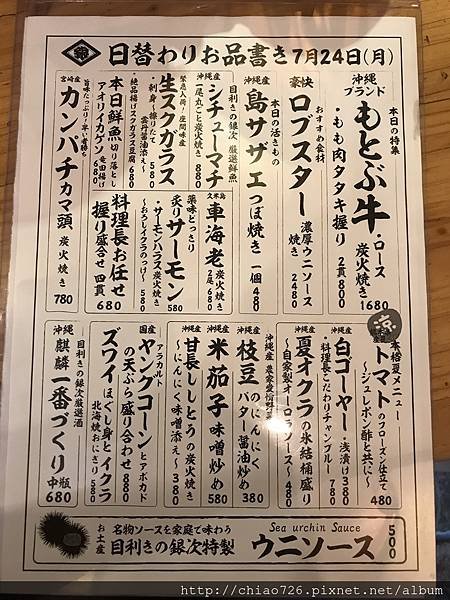 日替わりお品書き 7月24日(月)
本日の特集
沖縄ブランド もとぶ牛
・ロース炭火焼き 1680
・もも肉タタキ握り 2貫800
おすすめ食材
豪快 ロブスター
濃厚ウニソース焼き 2480
本日の活きもの
沖縄産 島サザエ つぼ焼き 一個480
目利きの銀次 厳選鮮魚
沖縄産 シチューマチ
一尾丸ごと炭火焼き 880
緊急入荷!座間味産
生スクガラス
・刺身、握りたて 雲丹醤油添え 580
・絶品揚げスクガラス豆腐 680
本日鮮魚 切り落とし
アオリイカゲソ竜田揚げ 680
旨味たっぷり!早い者勝ち
宮崎産 カンパチカマ頭 炭火焼き 780
久米島 車海老 炭火焼き 2尾680
薬味どっさり
炙りサーモン 580
・サーモンハラス炭火焼き
~おろしイクラのっけ~ 580
料理長お任せ
握り盛合せ 四貫680
本格夏メニュー
涼
トマトのフローズン仕立て
~ジュレポン酢と共に~ 480
沖縄産 白ゴーヤー
・浅漬け 380
・料理長こだわりチャンプルー 780
沖縄産 夏オクラの氷結桶盛り
~自家製オーロラソース~ 480
沖縄産 枝豆のにんにくバター醤油炒め 380
沖縄産 米茄子味噌炒め 580
沖縄産 甘長ししとうの炭火焼き
~にんにく味噌添え~ 380
国産 ヤングコーンとアボカドの天ぷら盛り合わせ 880
アラカルト
ズワイほぐし身とイクラ
北海焼おにぎり 580
目利きの銀次厳選酒
沖縄 麒麟一番づくり 中瓶680
お土産
名物ソースを家庭で味わう
目利きの銀次特製
Sea urchin Sauce
ウニソース
500
http://chiao726.pixnet.net/album